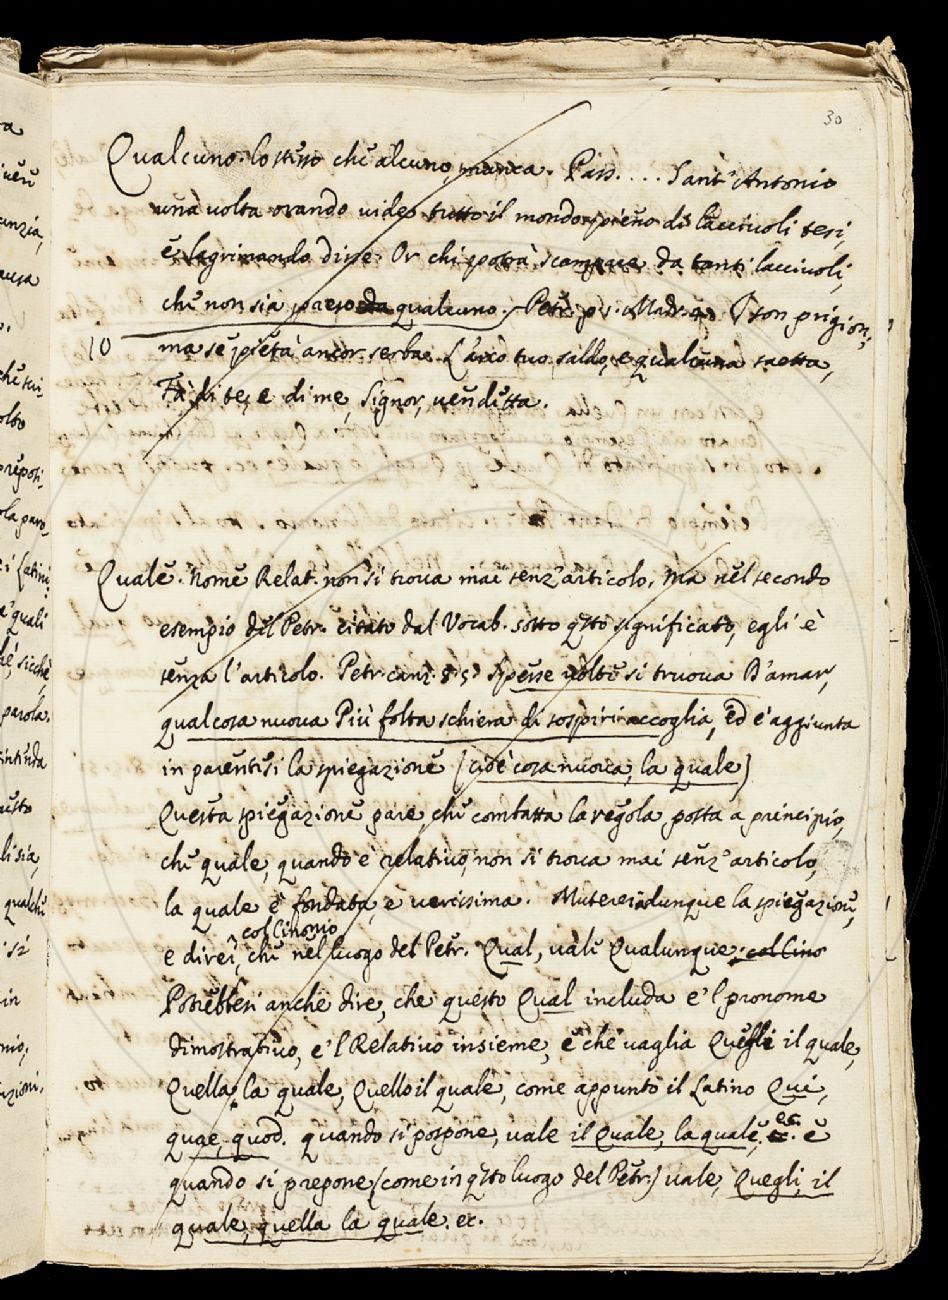 30
Qualcuno. lo stesso che alcuno, manca. Pass. . . . Sant' Antonio
una volta orando vide tutto il mondo pieno di lacciuoli tesi,
e lagrimando disse: Or chi potrà scampare da tanti lacciuoli,
che non sia preso da qualcuno. Petr. p. 1. Madr. 4. I' son prigion;
10 ma se pietà ancor serba L'arco tuo saldo, e qualcuna saetta,
Fà di te, e di me, Signor, vendetta.
Quale. Nome Relat. non si trova mai senz' articolo. Ma nel secondo
esempio del Petr. citato dal Vocab. sotto qsto significato, egli è
senza l'articolo. Petr. canz. 8. 5. Spesse volte si truova D'amar,
qual cosa nuova Più folta schiera di sospiri accoglia, ed è aggiunta
in parentesi la spiegazione (cioè cosa nuova, la quale)
Questa spiegazione pare che combatta la regola posta a principio,
che quale, quando è relativo, non si trova mai senz' articolo,
la quale è fondata, e verissima. Muterei dunque la spiegazione,
col Cinonio
e direi, che nel luogo del Petr. Qual, vale Qualunque. col Cino
Potrebbesi anche dire, che questo Qual includa e 'l pronome
dimostrativo, e 'l Relativo insieme, e che vaglia Quegli il quale,
Quella la quale, Quello il quale, come appunto il Latino Qui,
quae, quod. quando si pospone, vale il Quale, la quale, ec. e
quando si prepone (come in qsto luogo del Petr.) vale, Quegli, il
quale, quella la quale. ec.